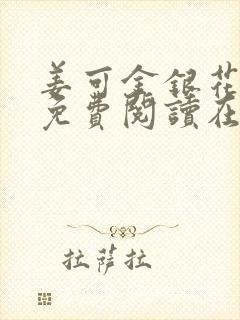 姜可金銀花
免費閱讀在
拉薩拉